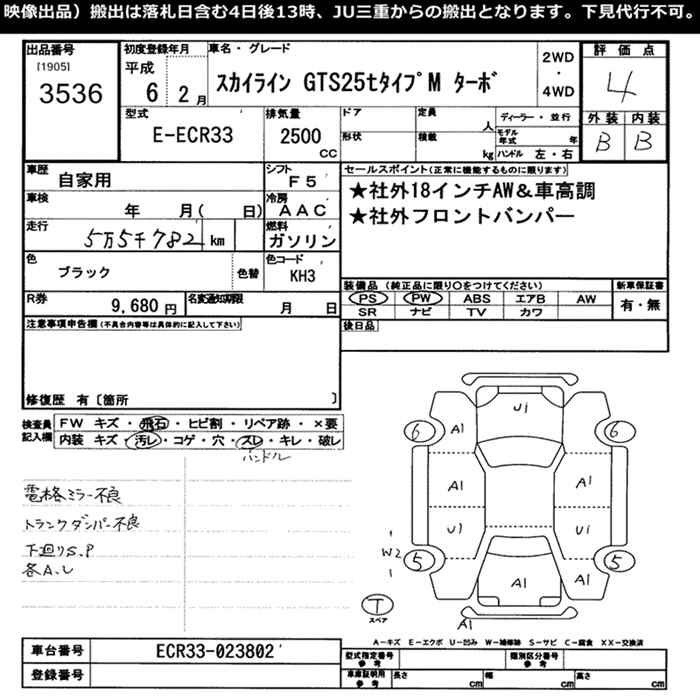 映像出品）搬出は落札日含む4日後13時、JU三重からの搬出となります。下見代行不可。
出品番号 初度登録年月 車名・グレード 2WD・4WD 評価点
[1905] 平成
3536 6 2月 スカイライン GTS25tタイプM ターボ 4
型式 排気量 ドア 定員 人 ディーラー・並行 外装 内装
E-ECR33 2500 CC 形状 積載 kg モデル年式 年 B B
ハンドル 左・右
車歴 自家用 シフト F5 セールスポイント(正常に機能するものに限ります)
車検 年 月( 日) 冷房 AAC ★社外18インチAW&車高調
走行 5万5千782 km 燃料 ガソリン ★社外フロントバンパー
色 ブラック 色替 色コード KH3
装備品 (純正品に限り○をつけてください) 新車保証書
R券 9,680円 名変通知期限 月 日 PS PW ABS エアB AW 有・無
SR ナビ TV カワ
注意事項申告欄(不具合内容等は具体的に記入して下さい) 後日品
修復歴 有〔箇所 〕
検査員記入欄 FW キズ・飛石・ヒビ割・リペア跡・×要
内装 キズ・汚レ・コゲ・穴・スレ・キレ・破レ
ハンドル
電格ミラー不良
トランクダンパー不良
下廻りS.P
各A.U
Ui
6 A1 6
A1 A1
U1 Ui
W2 5 5
A1 A1
T
スペア
A1
A-キズ E-エクボ U-凹み W-補修跡 S-サビ C-腐食 XX-交換済
車台番号 ECR33-023802 型式指定番号 参考 類別区分番号 参考
登録番号 車庫証明用 参考 長さ cm 幅 cm 高さ cm